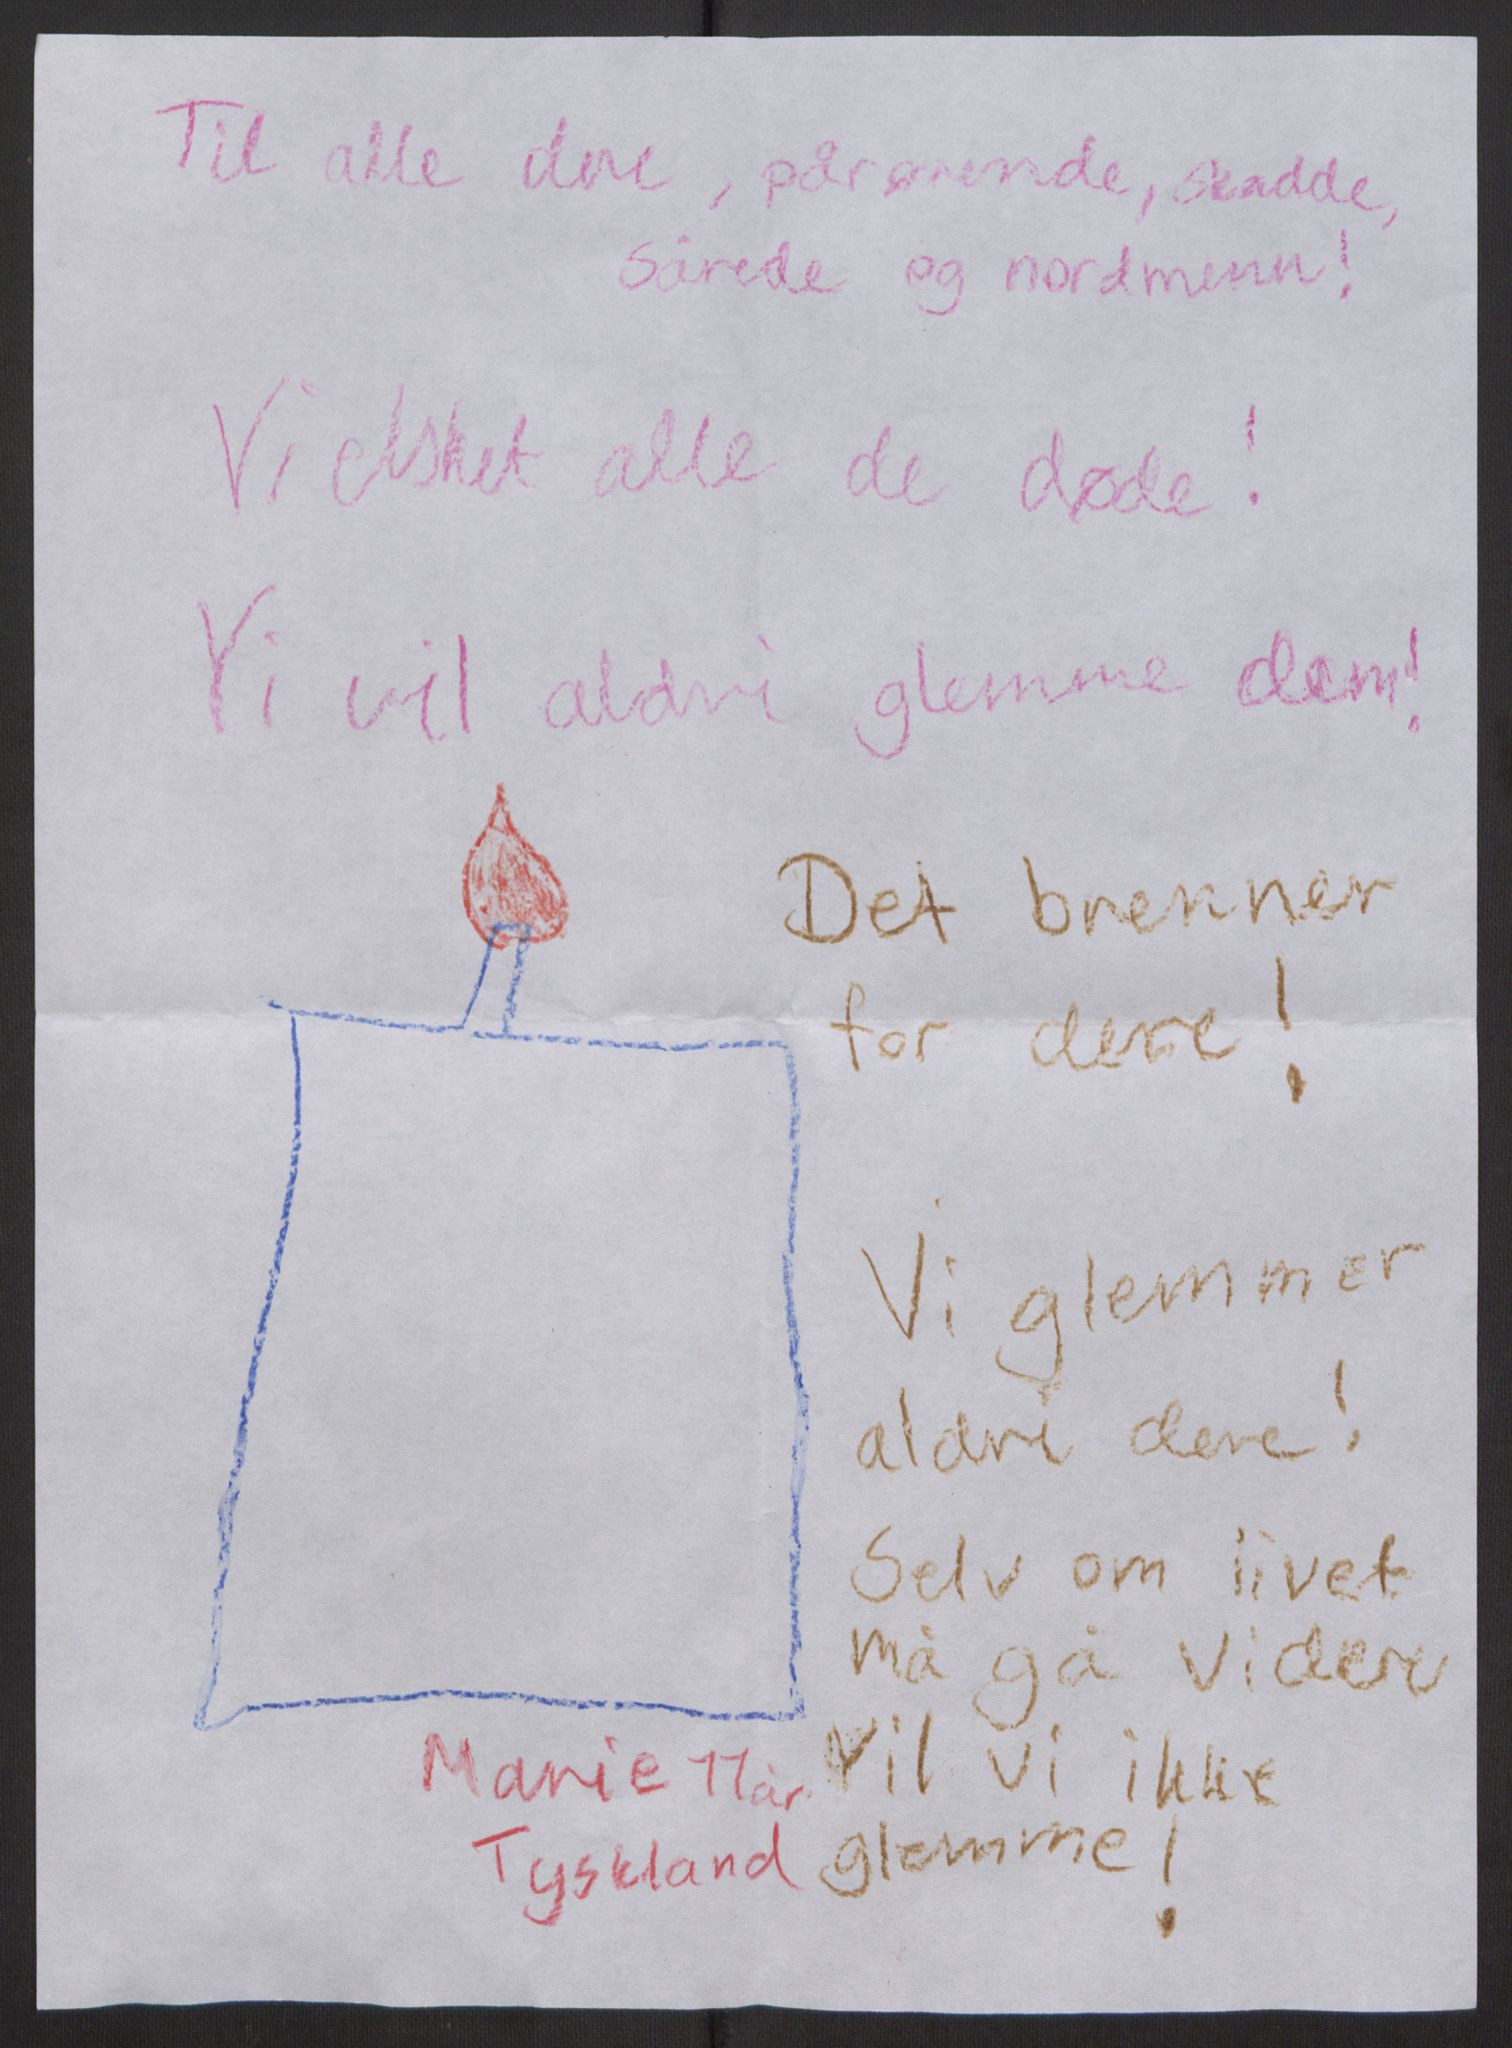 Til alle dere, pårørende, skadde,
sårede og nordmenn!
Vi elsket alle de døde!
Vi vil aldri glemme dem!
Det brenner
for dere!
Vi glemmer
aldri dere!
Selv om livet
må gå videre
vil vi ikke
glemme!
Marie 11 år
Tyskland